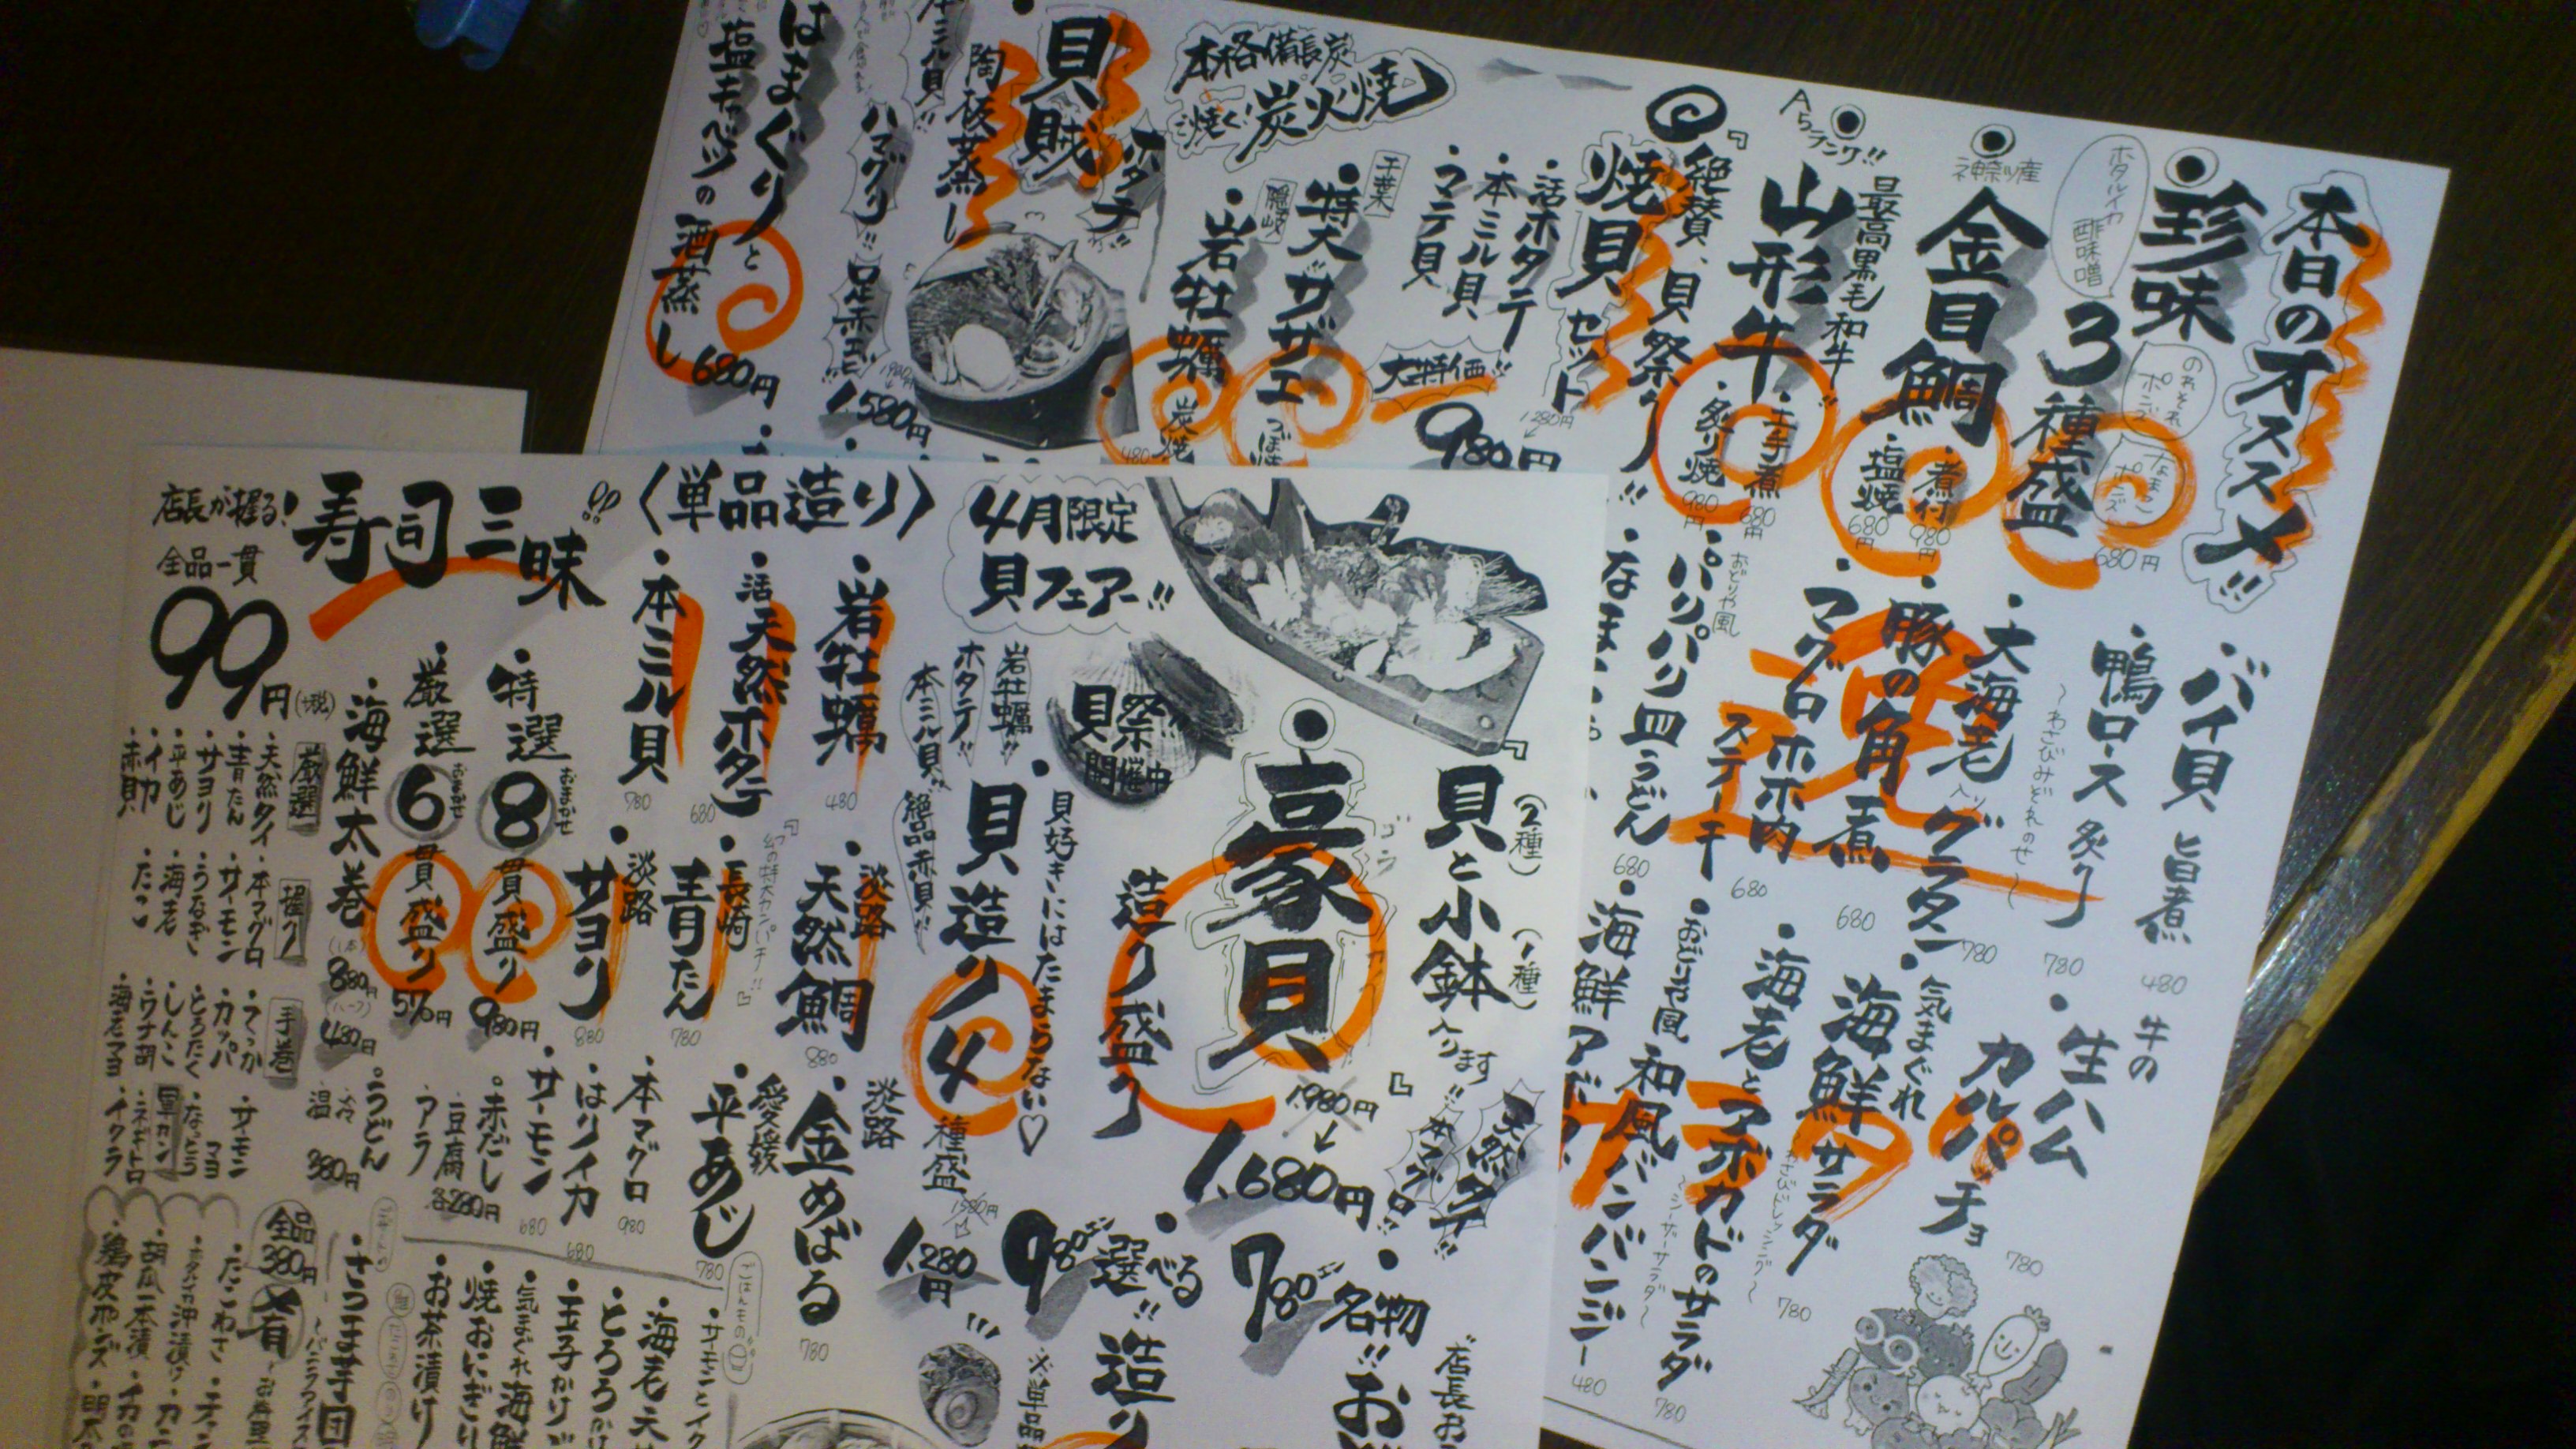 本日のオススメ!!
珍味3種盛
ホタルイカ酢味噌
のれそれポン酢
なまこポン酢
680円
神奈川産
金目鯛
・煮付 980円
・塩焼 680円
A5ランク!!
最高黒毛和牛
山形牛
・土手煮 680円
・炙り焼 980円
『絶賛、貝祭り!!
焼貝セット
・活ホタテ
・本ミル貝
・マテ貝
大特価
1,280円
980円
本格備長炭
で焼く
炭火焼
千葉
・特大サザエ
隠岐
・岩牡蠣
炭焼
480
貝賊
陶板蒸し
ホタテ!!
本ミル貝!!
ハマグリ!!
足赤エビ!!
1,580円
はまぐりと
塩キャベツの酒蒸し
680円
・バイ貝旨煮 480
・鴨ロース炙り 780
〜わさびみぞれのせ〜
・大海老入りグラタン 780
・豚の角煮 680
・マグロホホ肉
ステーキ 680
おどりや風
・パリパリ皿うどん 680
牛の
・生ハム
カルパッチョ 780
・気まぐれ
海鮮サラダ 780
〜わさびドレッシング〜
・海老とアボカドのサラダ 780
〜シーザーサラダ〜
・おどりや風
和風バンバンジー 480
4月限定
貝フェアー!!
貝祭
開催中
『貝と小鉢入ります!!』
(2種)
(1種)
豪貝
造り盛り
1,980円
1,680円
天然タイ
本マグロ
貝好きにはたまらない♡
・貝造り4種盛
岩牡蠣!!
ホタテ!!
本ミル貝!!
絶品赤貝!!
1,580円
1,280円
名物!!お
780円
"店長お
・選べる!!造り
980円
※単品
〈単品造り〉
・岩牡蠣 480
・活天然ホタテ 680
・本ミル貝 780
・淡路
天然鯛 880
『幻の特大カンパチ!!』
・長崎
青たん 780
・淡路
サヨリ 880
淡路
・金めばる 780
愛媛
・平あじ 780
・本マグロ 980
・はりイカ 680
・サーモン 680
店長が握る!
寿司三昧!!
全品一貫
99円(+税)
・特選
おまかせ
8貫盛り
980円
・厳選
おまかせ
6貫盛り
570円
・海鮮太巻
(1本)
880円
(ハーフ)
480円
厳選
・天然タイ
・青たん
・サヨリ
・平あじ
・イカ
・赤貝
握り
・本マグロ
・サーモン
・うなぎ
・海老
・たこ
手巻
・てっか
・カッパ
・とろたく
・しんこ
・ウナ胡
・海老マヨ
・サーモンマヨ
・なっとう
軍カン
・ネギトロ
・イクラ
・赤だし
・豆腐
・アラ
各280円
・うどん
冷
温
380円
ごはんもの
・サーモンとイク
・海老天
・とろろかけ
・玉子かけ
・気まぐれ海鮮
・焼おにぎり
・お茶漬け
・さつま芋団
〜バニラアイス
全品
380円
肴
・たこわさ
・ホタルイカ沖漬け
・胡瓜一本漬
・鶏皮ポンズ